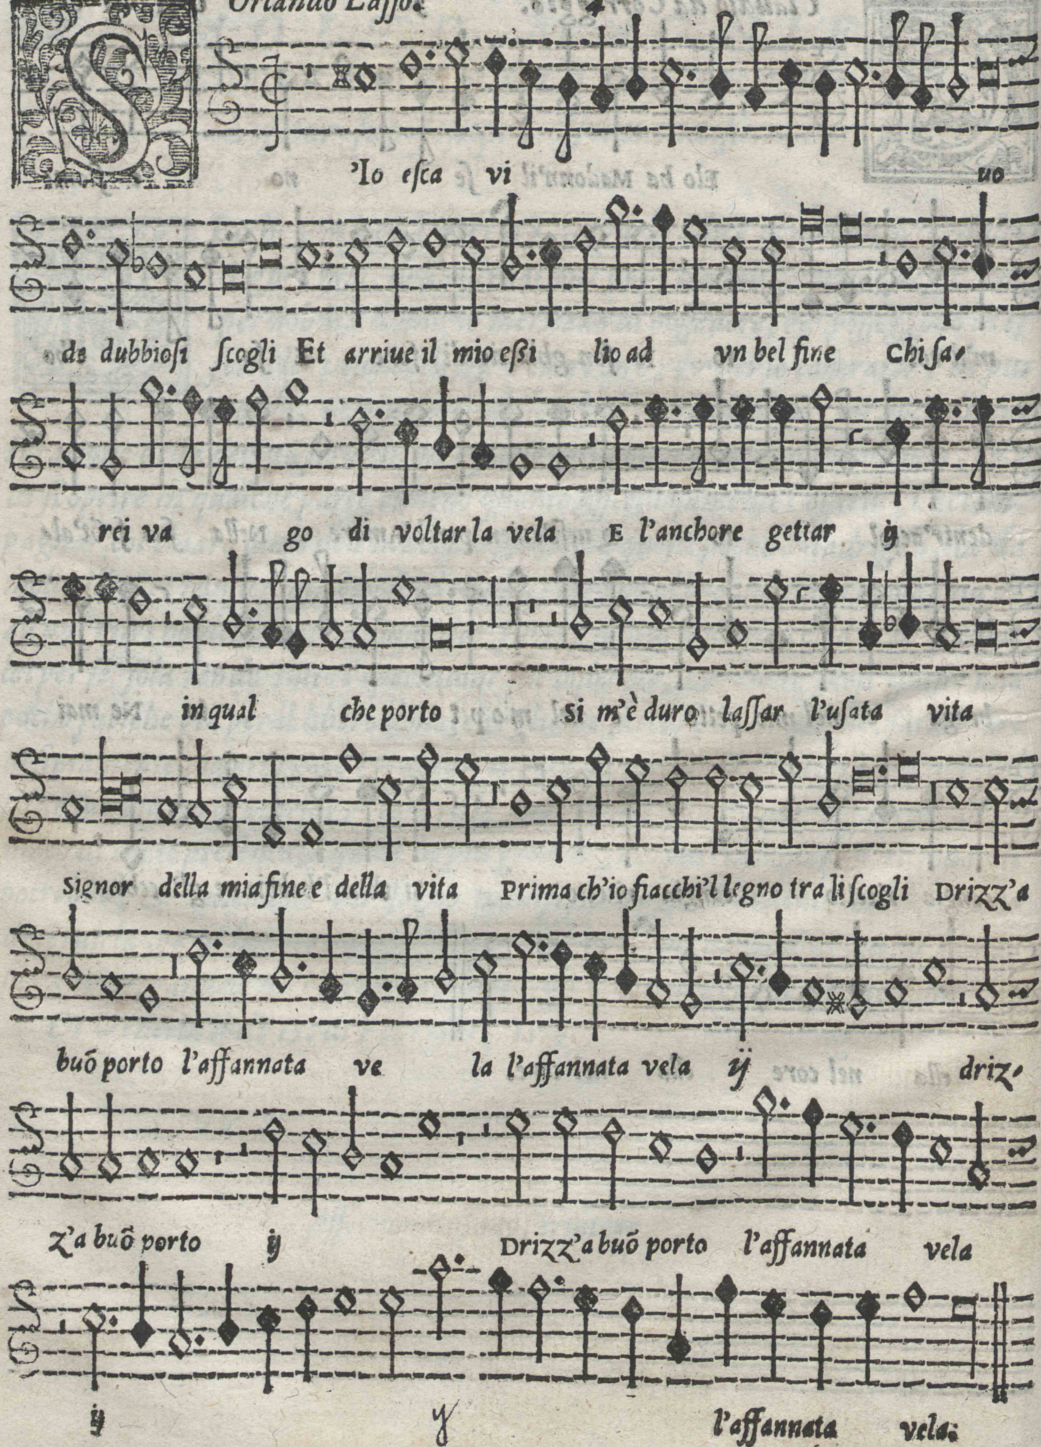 Orlando Lasso. 4
S
'Io esca vi uo
de dubbiosi scogli Et arriue il mio eßi lio ad vn bel fine Chi sa-
rei va go di voltar la vela E l'anchore gettar ij
in qual che porto Si m'è duro lassar l'usata vita
Signor della mia fine e della vita Prima ch'io fiacchi'l legno tra li scogli Drizz'a
buõ porto l'affannata ve la l'affannata vela ij driz-
z'a buõ porto ij Drizz'a buõ porto l'affannata vela
ij ij l'affannata vela.